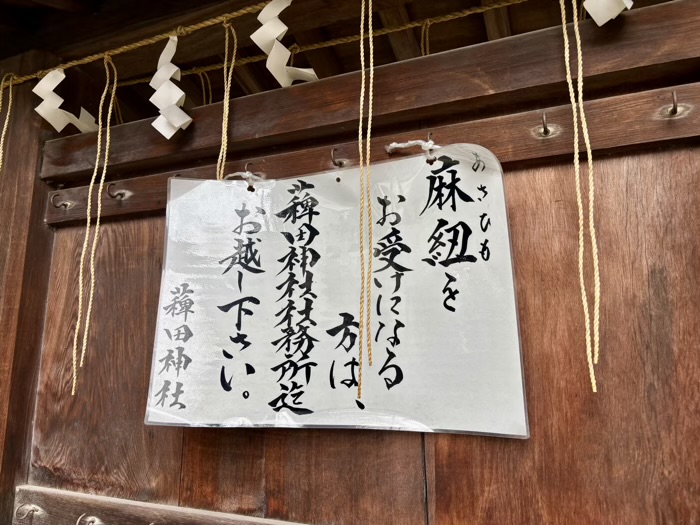 麻紐を
あさひも
お受けになる
方は、
薭田神社社務所迄
お越し下さい。
薭田神社